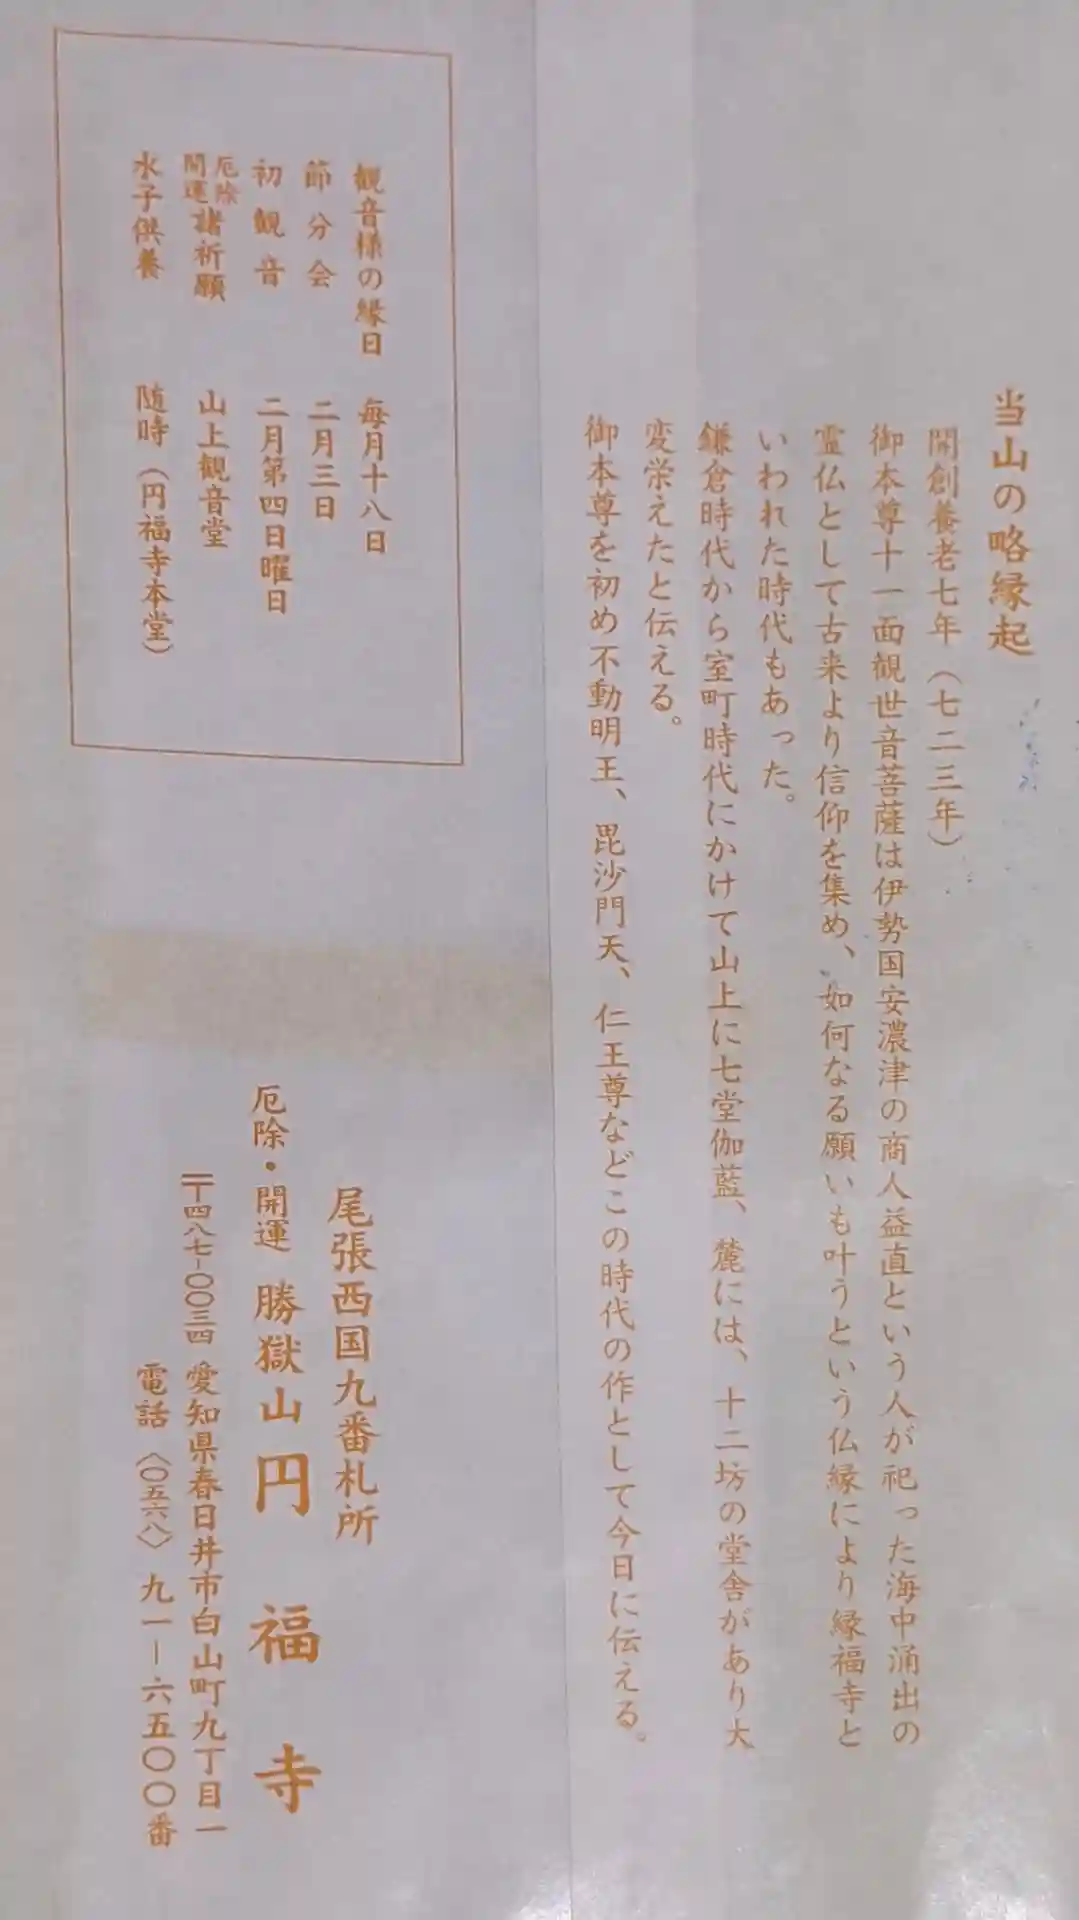 当山の略縁起
開創養老七年（七二三年）
御本尊十一面観世音菩薩は伊勢国安濃津の商人益直という人が祀った海中涌出の
霊仏として古来より信仰を集め、如何なる願いも叶うという仏縁により縁福寺と
いわれた時代もあった。
鎌倉時代から室町時代にかけて山上に七堂伽藍、麓には、十二坊の堂舎があり大
変栄えたと伝える。
御本尊を初め不動明王、毘沙門天、仁王尊などこの時代の作として今日に伝える。
観音様の縁日 毎月十八日
節分会 二月三日
初観音 二月第四日曜日
厄除開運諸祈願 山上観音堂
水子供養 随時（円福寺本堂）
尾張西国九番札所
厄除・開運 勝嶽山 円福寺
〒四八七-〇〇三四 愛知県春日井市白山町九丁目一
電話〈〇五六八〉九一－六五〇〇番